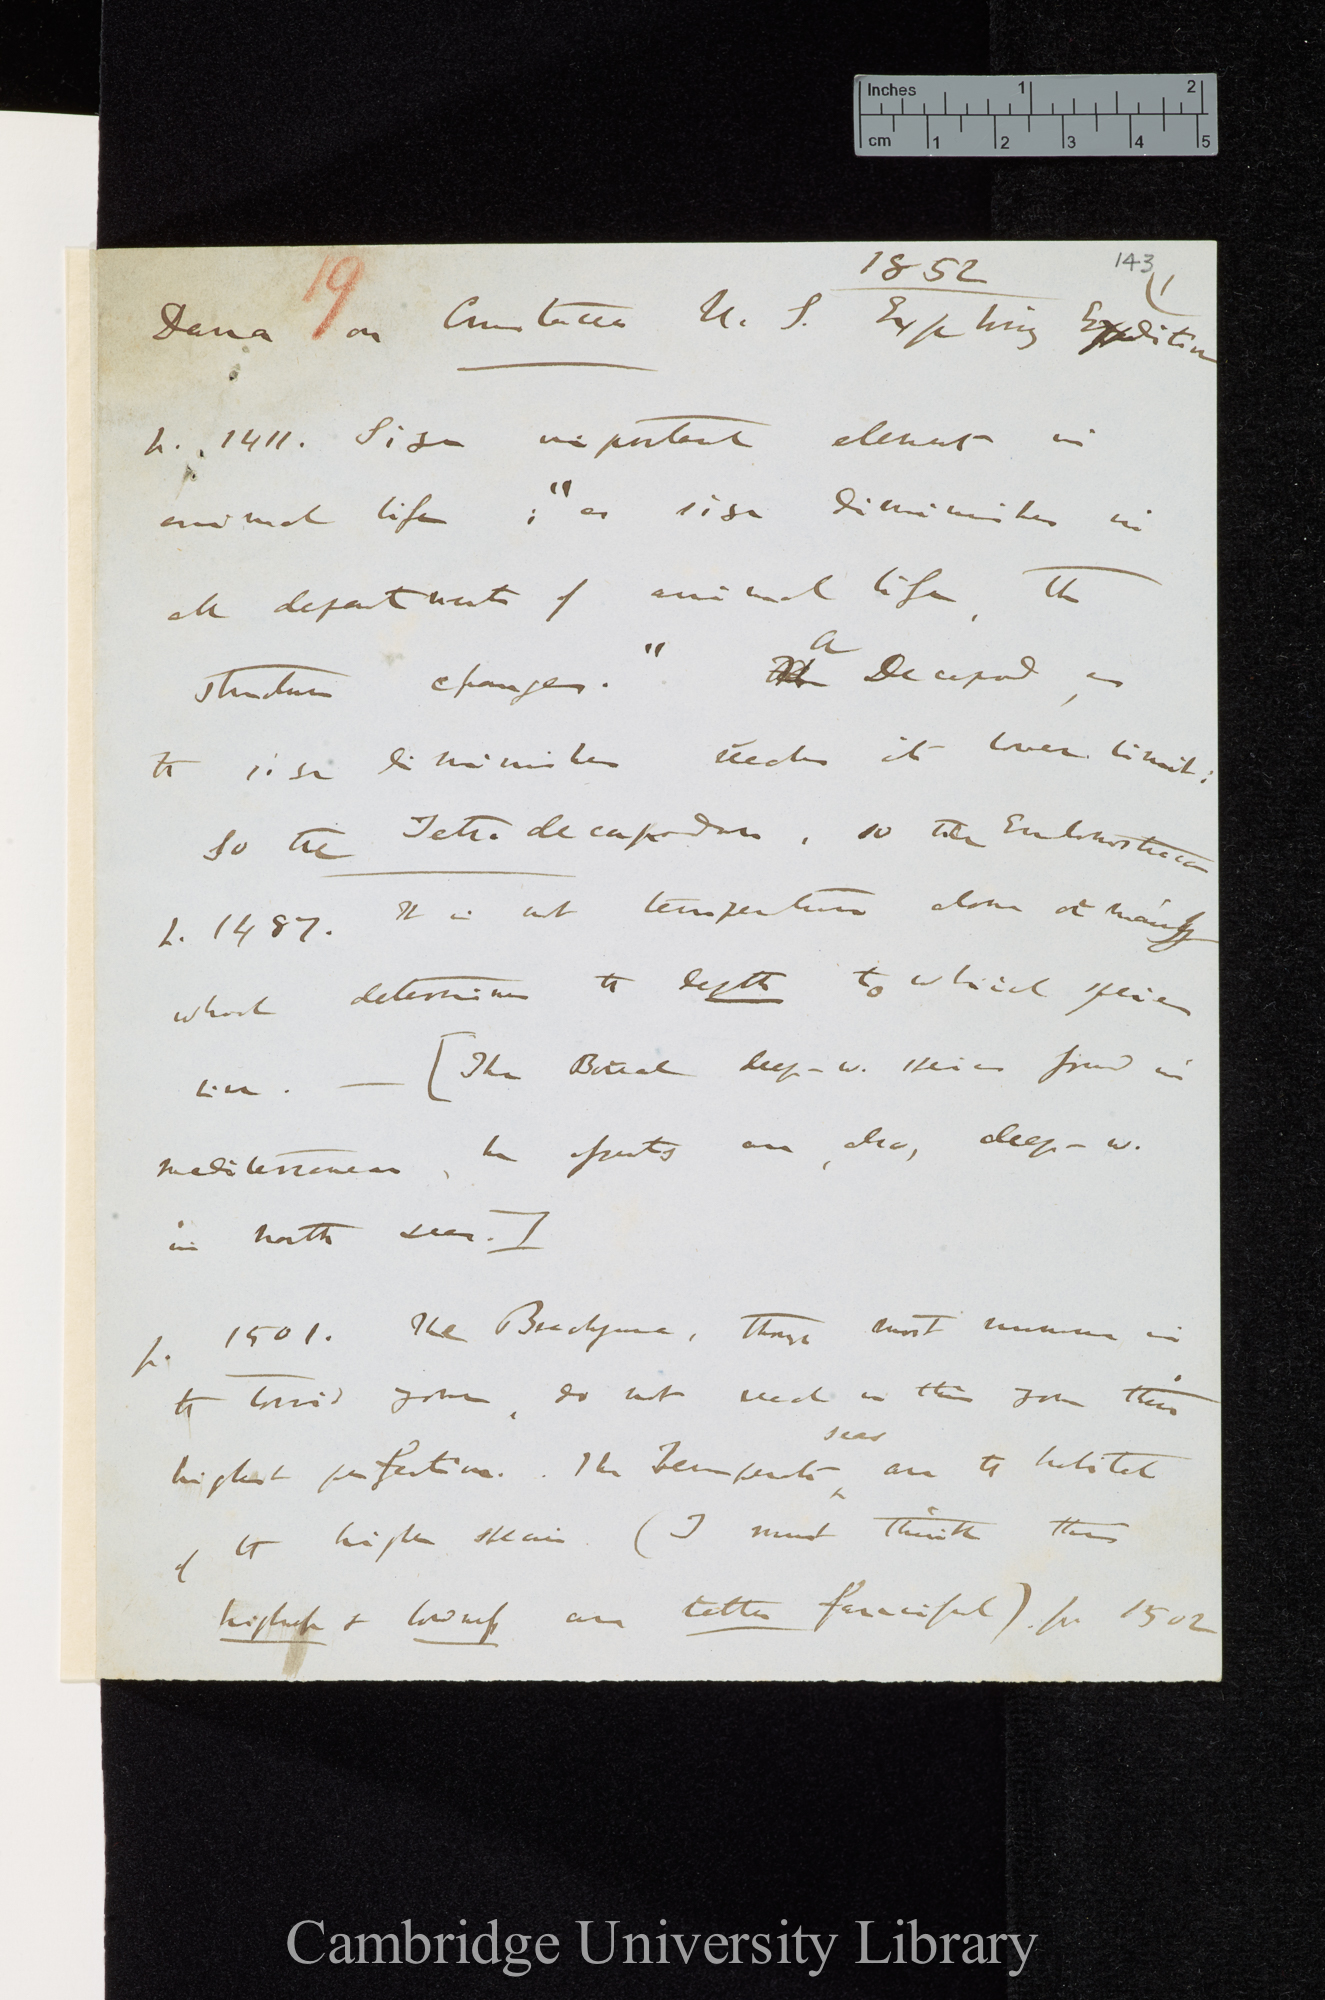 Inches 1 2
cm 1 2 3 4 5
143
19 1852 (1
Dana on Crustacea U. S. Exploring Expedition
p. 1411. Size important element in
animal life ; "as size diminishes in
all departments of animal life, the
structure changes." a Decapod, as
the size diminishes reaches its lower limit;
So the Tetradecapodan, so the Entomostraca
p. 1487. It is not temperature alone or mainly
which determines the depth to which species
live. — [The Boreal deep-w. species found in
mediterranean, he of parts are, also, deep-w.
in north seas.]
p. 1501. The Brachyura, though most numerous in
the torrid zone, do not reach in this zone their
highest perfection. The Temperate seas are the habitat
of the higher species. (I must think these
highest & lowest are rather fanciful). p 1502
Cambridge University Library